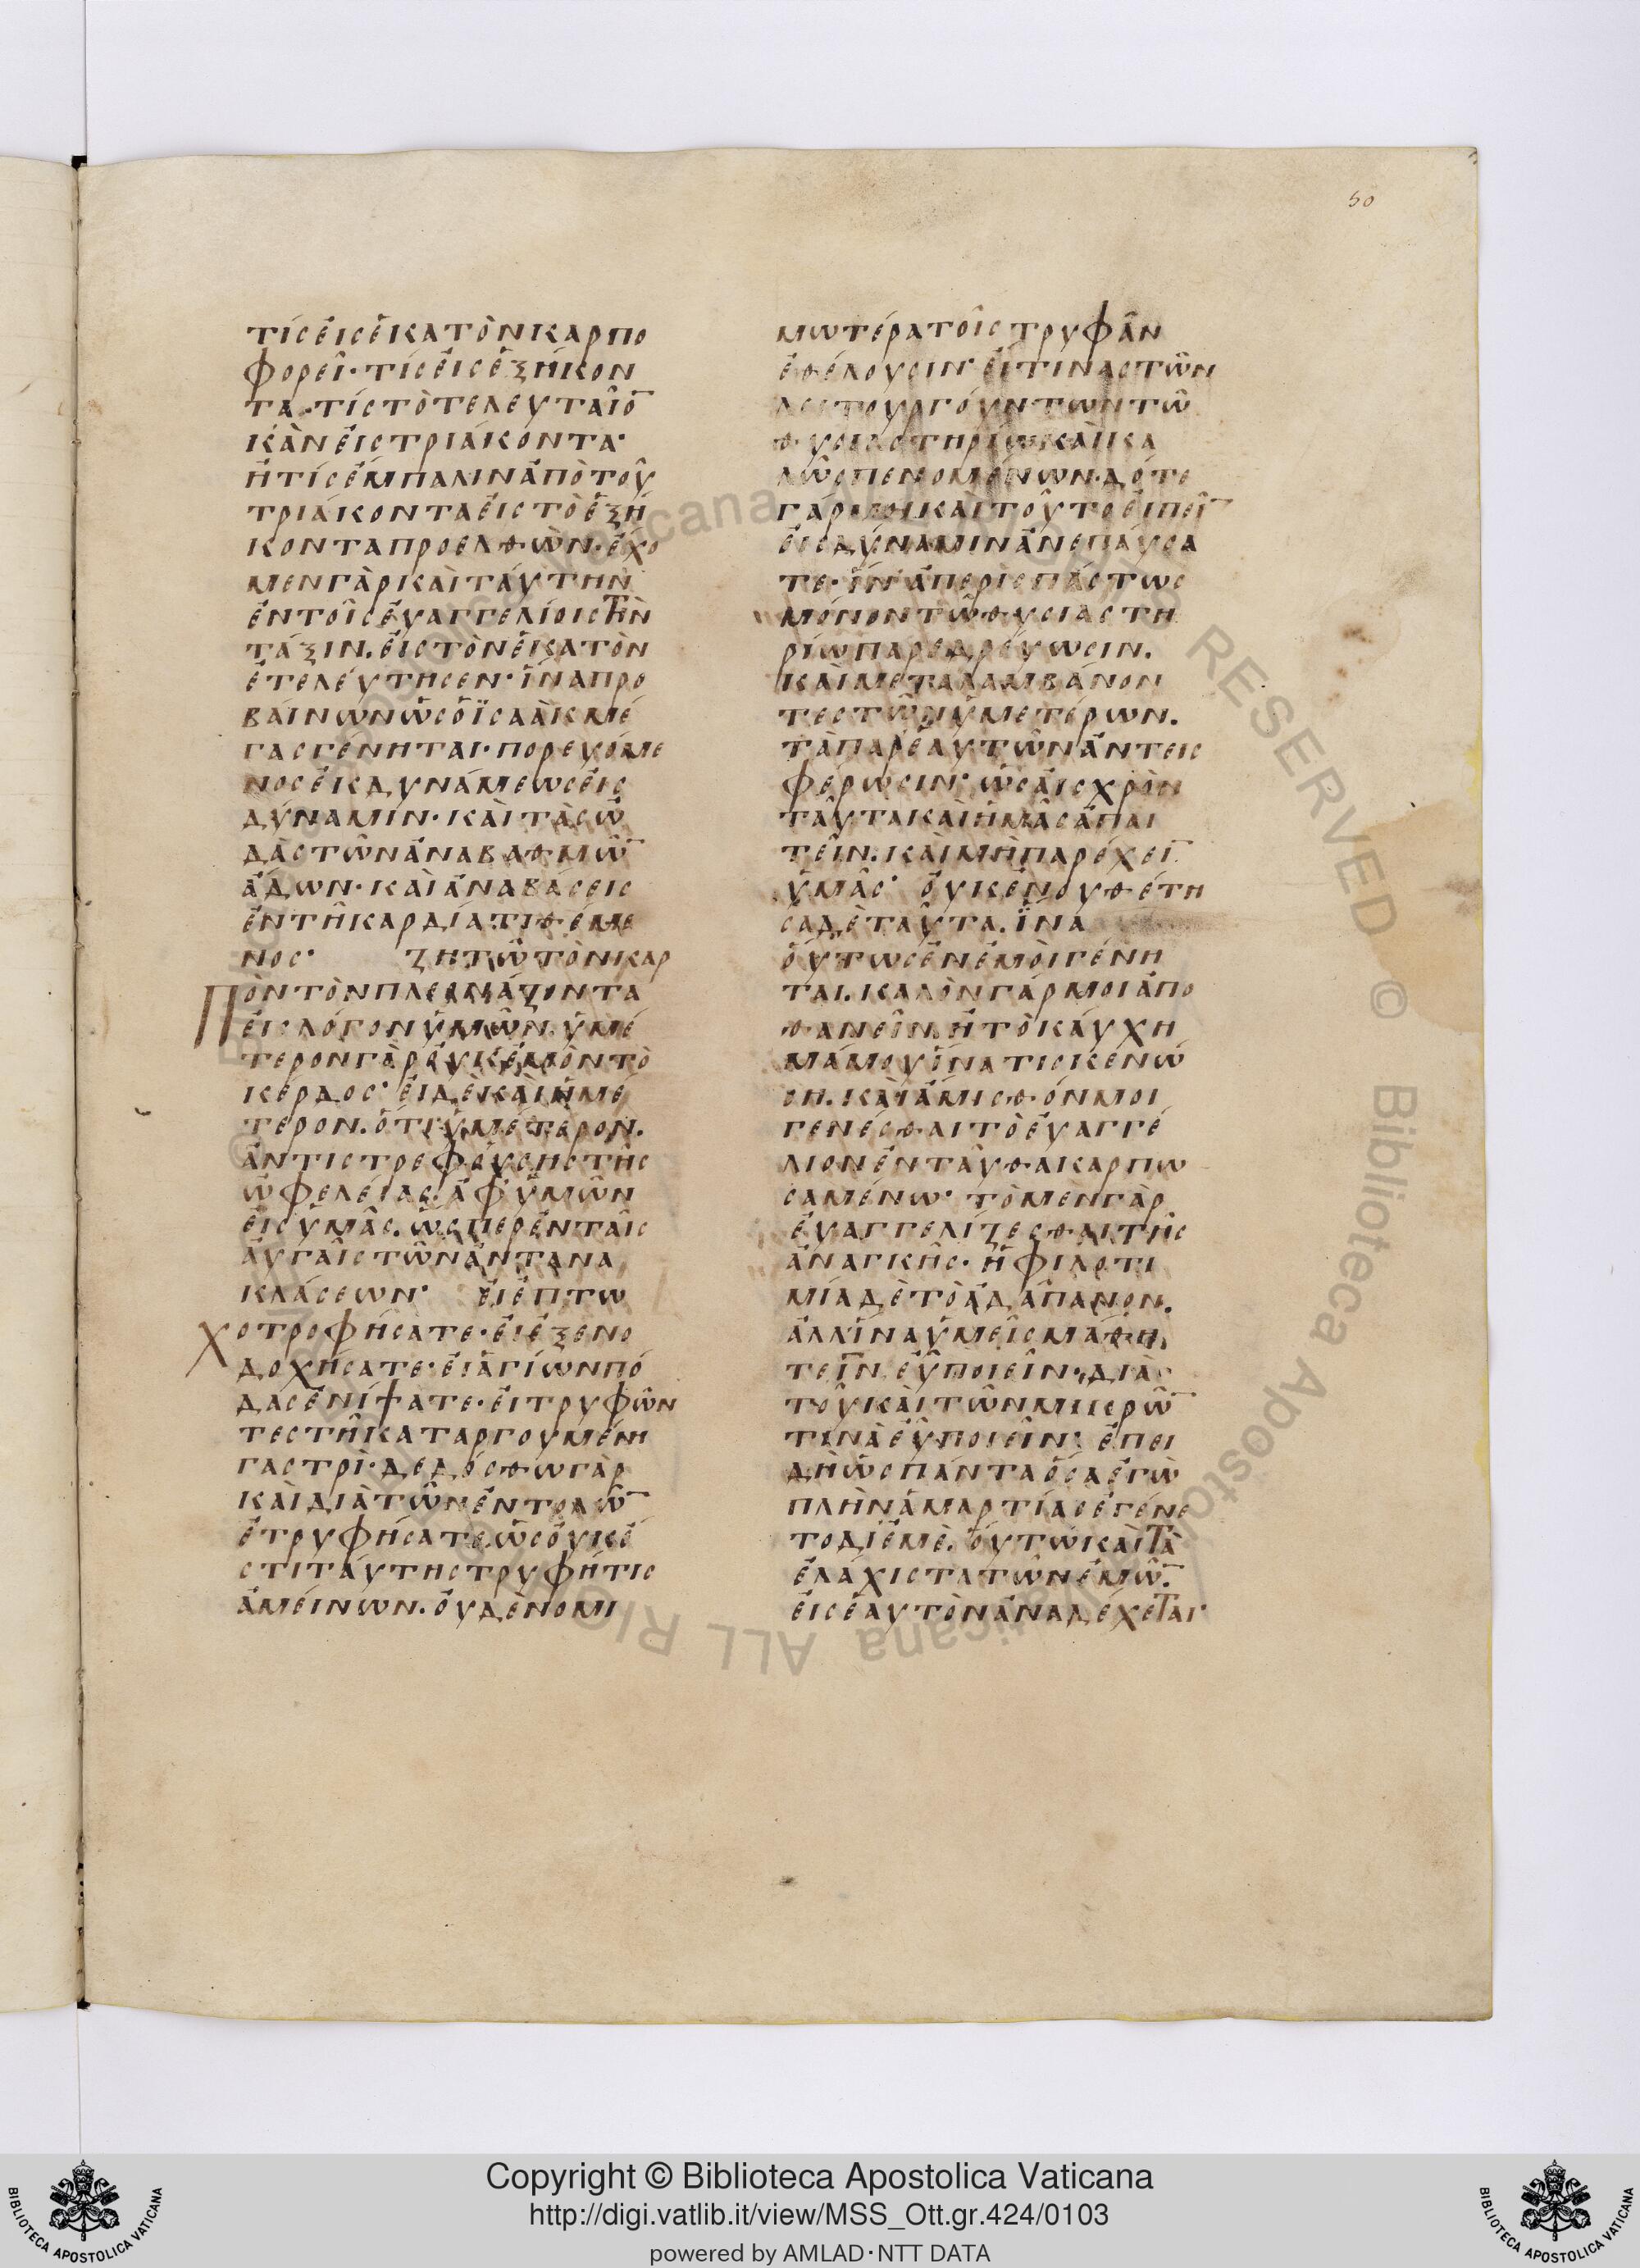 50
τίς εἰς ἑκατὸν καρπο
φορεῖ· τίς εἰς ἑξήκον
τα· τίς τὸ τελευταῖο̅
κἂν εἰς τριάκοντα·
ἢ τίς ἔμπαλιν ἀπὸ τοῦ
τριάκοντα εἰς τὸ ἑξή
κοντα προελθὼν· ἔχο
μεν γὰρ καὶ ταύτην
ἐν τοῖς εὐαγγελίοις τὴν
τάξιν. εἰς τὸν ἑκατὸν
ἐτελεύτησεν· ἵνα προ
βαίνων ὡς ὁ ϊσαὰκ μέ
γας γένηται· πορευόμε
νος ἐκ δυνάμεως εἰς
δύναμιν· καὶ τὰς ὠ
δὰς τῶν ἀναβαθμῶ̅
ἄδων· καὶ ἀναβάσεις
ἐν τῇ καρδία τιθέμε
νος· ζητῶ τὸν καρ
πὸν τὸν πλεονάζοντα
εἰς λόγον ὑμῶν. ὑμέ
τερον γὰρ οὐκ ἐμὸν τὸ
κέρδος· εἰ δὲ καὶ ἡμέ
τερον. ὅτι ὑμέτερον.
ἀντιστρεφούσης τῆς
ὠφελείας. ἀφ' ὑμῶν
εἰς ὑμᾶς. ὥσπερ ἐν ταῖς
αὐγαῖς τῶν ἀντανα
κλάσεων· εἰ ἐπτω
χοτροφήσατε· εἰ ἐξενο
δοχήσατε· εἰ ἁγίων πό
δας ἐνίψατε· εἰ τρυφῶν
τες τῇ καταργουμένη
γαστρὶ· δεδόσθω γὰρ
καὶ διὰ τῶν ἐντολῶ̅
ἐτρυφήσατε, ὡς οὐκ ἔ
στι ταύτης τρυφή τις
ἀμείνων. οὐδὲ νομι
μωτέρα τοῖς τρυφᾶν
ἐθέλουσιν· εἴ τινας τῶν
λειτουργούντων τῶ
θυσιαστηρίω καὶ κα
λῶς πενομένων. δότε
γάρ μοι καὶ τοῦτο εἰπεῖ̅
εἰς δύναμιν ἀνεπαύσα
τε· ἵν' ἀπερισπάστως
μόνον τῶ θυσιαστη
ρίω παρεδρεύωσιν.
καὶ μεταλαμβάνον
τες τῶν ὑμετέρων.
τὰ παρ' ἑαυτῶν ἀντεις
φέρωσιν· ὡς αἰσχρὸν
ταῦτα καὶ ἡμᾶς ἀπαι
τεῖν. καὶ μὴ παρέχει̅
ὑμᾶς· οὐκ ἐνουθέτη
σα δὲ ταῦτα. ἵνα
οὕτως ἐν ἐμοὶ γένη
ται. καλὸν γάρ μοι ἀπο
θανεῖν. ἢ τὸ καύχη
μά μου ἵνα τις κενώ
ση. καὶ ἄμισθόν μοι
γενέσθαι τὸ εὐαγγέ
λιον ἐνταῦθα καρπω
σαμένω· τὸ μὲν γὰρ
εὐαγγελίζεσθαι τῆς
ἀναγκῆς. ἡ φιλοτι
μία δὲ τὸ ἀδάπανον.
ἀλλ' ἵνα ὑμεῖς μάθη
τε ΙΝ εὖ ποιεῖν. διὰ
τοῦ καὶ τῶν μικρῶ̅
τινὰ εὖ ποιεῖν· ἐπει
δὴ ὡς πάντα ὅσα ἐγὼ
πλὴν ἁμαρτίας ἐγένε
το δι' ἐμὲ, οὕτω καὶ τὰ
ἐλάχιστα τῶν ἐμῶ̅.
εἰς ἑαυτὸν ἀναδέχεται·
Copyright © Biblioteca Apostolica Vaticana
http://digi.vatlib.it/view/MSS_Ott.gr.424/0103
powered by AMLAD·NTT DATA
BIBLIOTECA APOSTOLICA VATICANA
BIBLIOTECA APOSTOLICA VATICANA